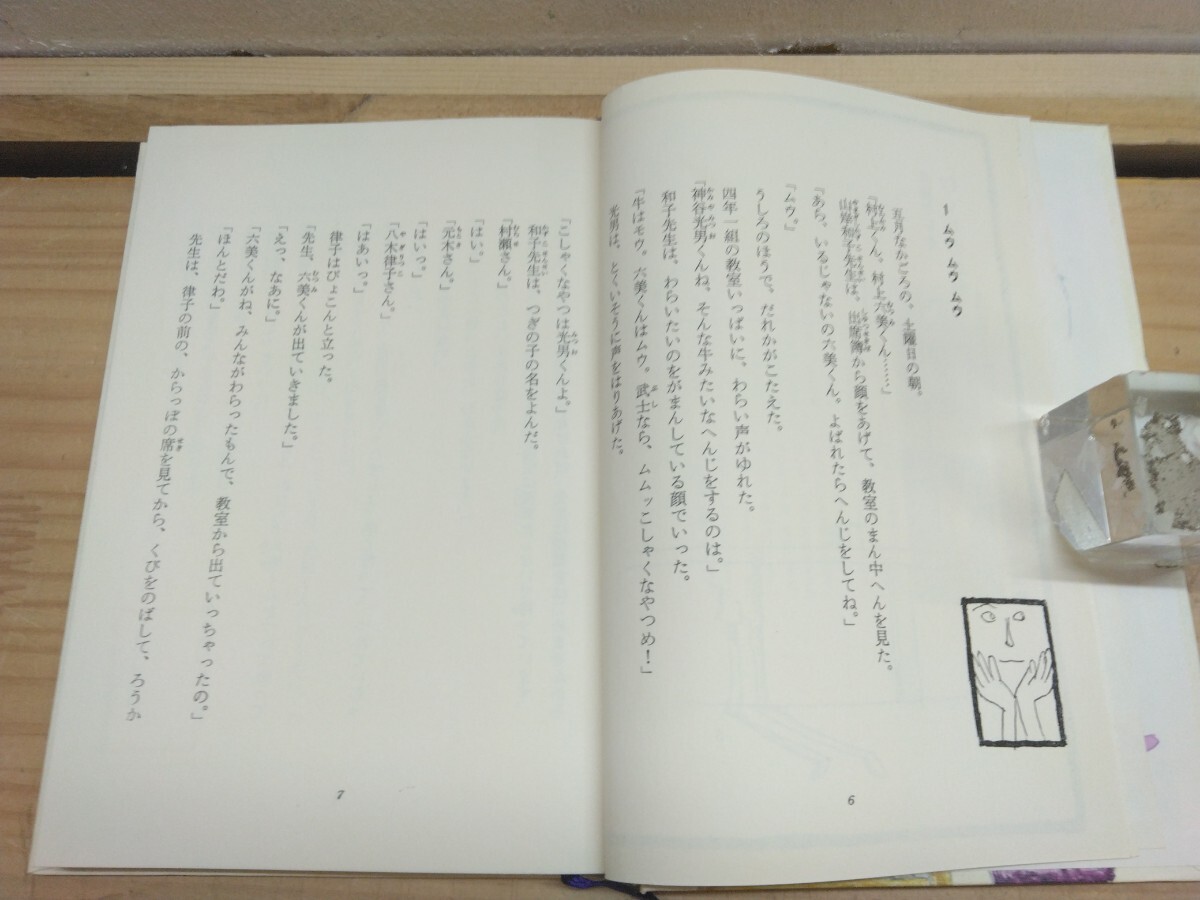 1 ムウ ムウ ムウ
五月なかごろの、土曜日の朝。
「村上くん、村上六美くん……」
山岸和子先生は、出席簿から顔をあげて、教室のまん中へんを見た。
「あら、いるじゃないの六美くん。よばれたらへんじをしてね。」
「ムウ。」
うしろのほうで、だれかがこたえた。
四年一組の教室いっぱいに、わらい声がゆれた。
「神谷光男くんね、そんな牛みたいなへんじをするのは。」
和子先生は、わらいたいのをがまんしている顔でいった。
「牛はモウ。六美くんはムウ。武士なら、ムムッこしゃくなやつめ!」
光男は、とくいそうに声をはりあげた。
6
「こしゃくなやつは光男くんよ。」
和子先生は、つぎの子の名をよんだ。
「村瀬さん。」
「はい。」
「元木さん。」
「はいっ。」
「八木律子さん。」
「はあいっ。」
律子はぴょこんと立った。
「先生、六美くんが出ていきました。」
「えっ、なあに。」
「六美くんがね、みんながわらったもんで、教室から出ていっちゃったの。」
「ほんとだわ。」
先生は、律子の前の、からっぽの席を見てから、くびをのばして、ろうか
7